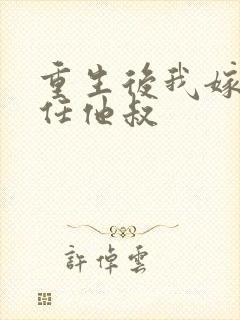 重生後我嫁
任他叔
許倬雲